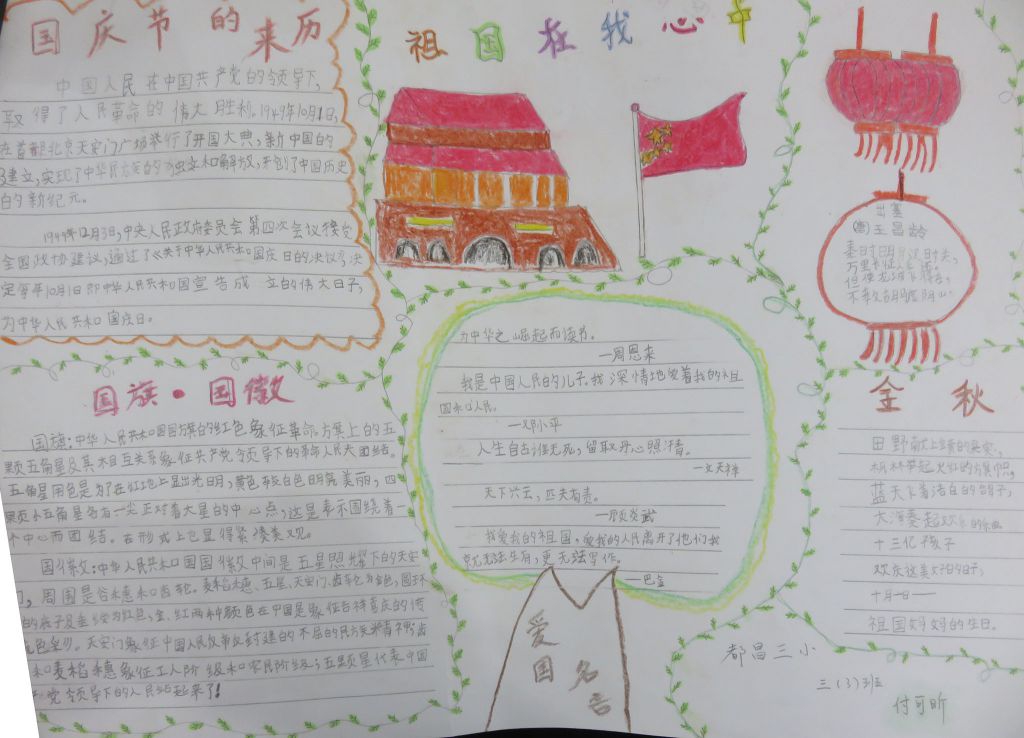 国庆节的来历
中国人民在中国共产党的领导下,
取得了人民革命的伟大胜利。1949年10月1日,
在首都北京天安门广场举行了开国大典,新中国的
建立,实现了中华民族的独立和解放,开创了中国历史
的新纪元。
1949年12月3日,中央人民政府委员会第四次会议接受
全国政协建议,通过了《关于中华人民共和国庆日的决议》,决
定每年10月1日即中华人民共和国宣告成立的伟大日子,
为中华人民共和国国庆日。
祖国在我心中
出塞
王昌龄
秦时明月汉时关,
万里长征人
但使龙城
不教胡马度阴山
国旗·国徽
国旗:中华人民共和国国旗的红色象征革命。旗上的五
颗五角星及其相互关系象征共产党领导下的革命人民大团结。
五角星用色是为了在红地上显出光明,黄色较白色明亮美丽,四
颗小五角星各有一尖正对着大星的中心点,这是表示围绕着一
个中心而团结。在形式上也显得紧凑美观。
国徽:中华人民共和国国徽中间是五星照耀下的天安
门,周围是谷穗和齿轮。麦稻穗、五星、天安门、齿轮为金色,圆环
的底子及垂绶为红色,金、红两种颜色在中国是象征吉祥喜庆的传
统色彩。天安门象征中国人民反帝反封建的不屈的民族精神;齿
和麦稻穗象征工人阶级和农民阶级;五颗星代表中国
党领导下的人民站起来了!
为中华之崛起而读书。
—周恩来
我是中国人民的儿子。我深情地爱着我的祖
国和人民。
—邓小平
人生自古谁无死,留取丹心照汗青。
—文天祥
天下兴亡,匹夫有责。
—顾炎武
我爱我的祖国,爱我的人民离开了他们我
就无法生存,更无法写作。
—巴金
爱国名言
金秋
田野献上
蓝天下着洁白的鸽子,
大海奏起欢乐的乐曲
十三亿孩子
欢庆这美好的日子,
十月一日——
祖国妈妈的生日。
都昌三小
三(3)班
付可昕